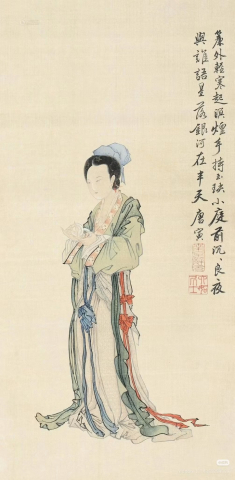 簾外輕寒起暝煙手持玉玦小庭前沉々良夜
與誰語星落銀河在半天唐寅